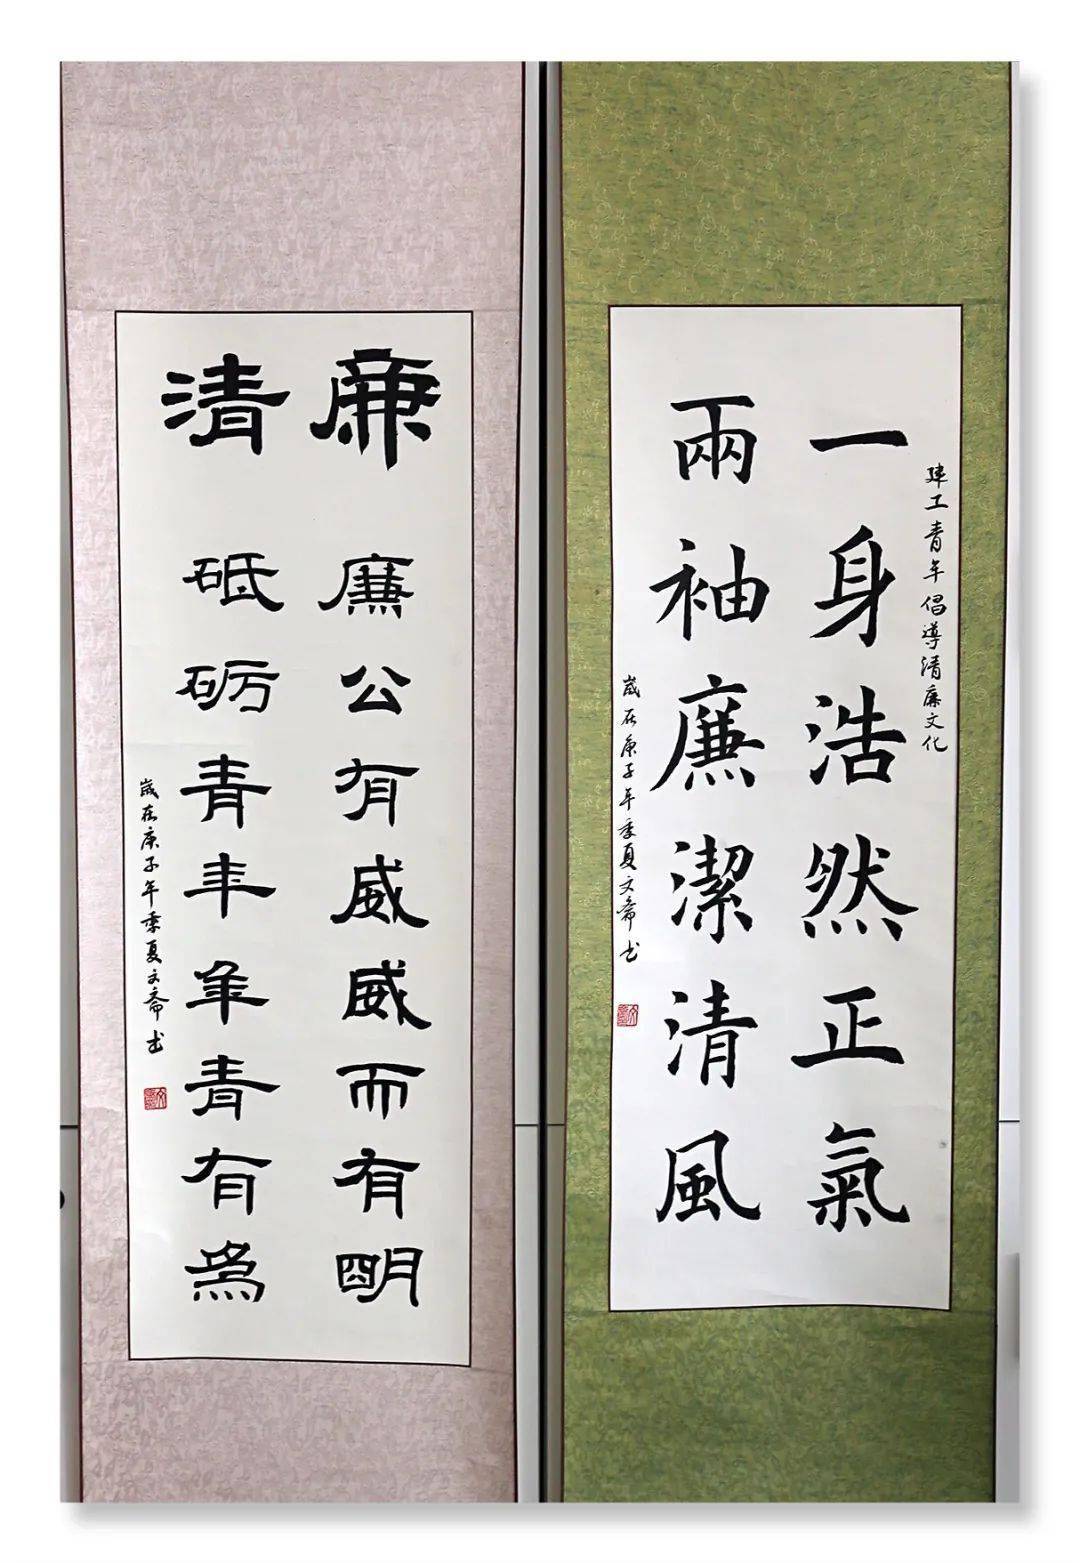 建工青年倡導清廉文化
一身浩然正氣
兩袖廉潔清風
歲在庚子年季夏文斋书
廉清
廉公有威威而有明
砥砺青年年青有為
歲在庚子年季夏文斋书